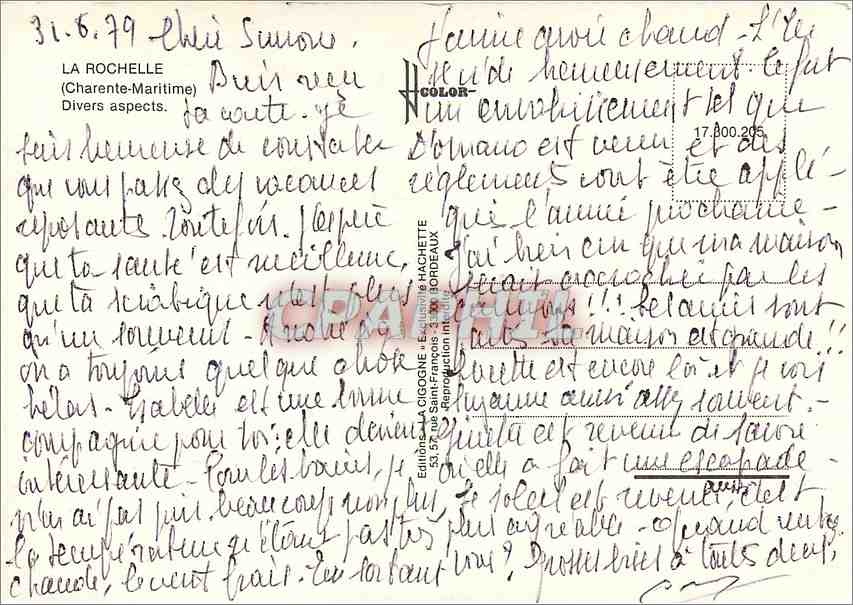 31.8.79 Chère Simone.
LA ROCHELLE
(Charente-Maritime)
Divers aspects.
Bien reçu
ta carte. Je
suis heureuse de constater
que vous passez des vacances
reposantes. Toutefois. J'espère
que ta santé est meilleure,
que ta sciatique n'est plus
qu'un souvenir - A notre âge
on a toujours quelque chose
hélas - Isabelle est une bonne
compagnie pour toi: elle devient
intéressante - Pour les bains, je
n'en ai pas pris beaucoup non plus,
la température n'étant pas très
chaude, le vent frais. En sortant
HCOLOR
17.300.205
Editions "LA CIGOGNE" - Exclusivité HACHETTE
53, 57, rue Saint-François - BORDEAUX
Reproduction interdite
J'aime avoir chaud - L'Ile
se vide heureusement. Ce fut
un envahissement tel que
D'Ornano est venu et des
règlements vont être appli-
qués l'année prochaine -
J'ai bien cru que ma maison
serait accrochée par les
campings!!! Les amis sont
la maison est grande!!
est encore là et je vois
Suzanne aussi assez souvent. -
est revenue de Savoie
où elle a fait une escapade -
aussi
le soleil est revenu, c'est
plus agréable - Quand rentrez
vous? Grosses bises à toutes deux.
CPAPHIL